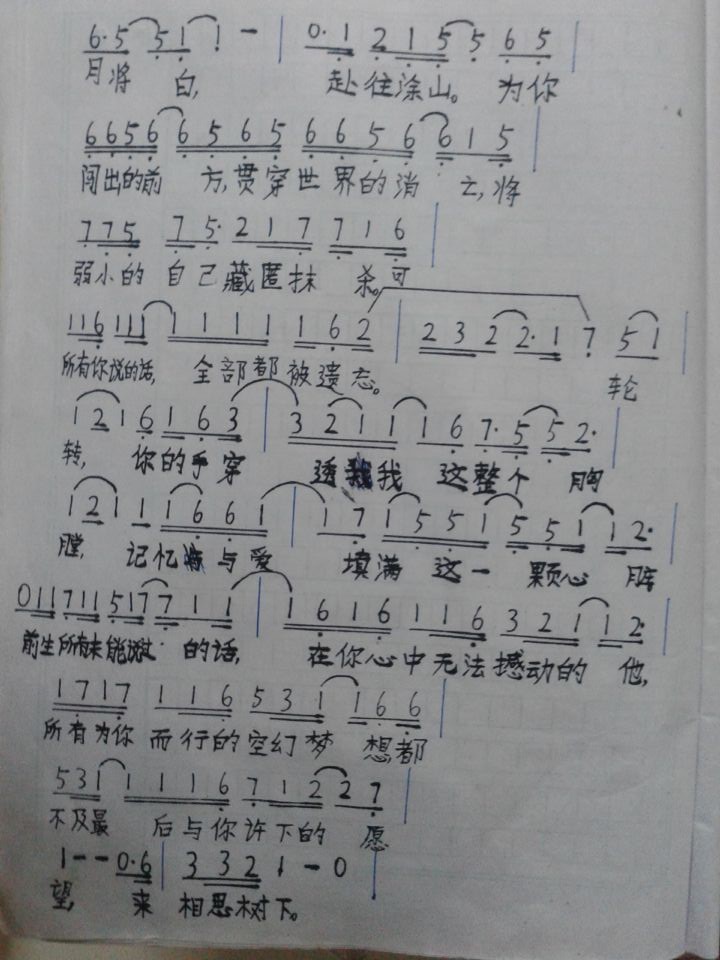 6·5 5 1 1 - | 0·1 2 1 5 5 6 5 |
月将 白, 赴往涂山。 为你
6656 6565 6656 615 |
闯出的前 方,贯穿世界的消 亡,将
775 75· 217 716 |
弱小的 自己藏匿抹 杀。可
116 111 1111 162 | 2322·17 51 |
所有你说的话, 全部都被遗忘。 轮
1216163 | 3211 16 7·5 52· |
转, 你的手穿 透我 这整个 胸
1211 1661 | 17 1551 551 12· |
膛, 记忆 与爱 填满 这一 颗心 脏
011 711 517 711 | 1616 116 321 12· |
前生所有未能说 的话, 在你心中无法撼动的 他,
1717 116 531 166 |
所有为你 而行的空幻梦 想都
531 1116 712 27 |
不及最 后与你许下的 愿
1--0·6 | 332 1-0 |
望, 来 相思树下。